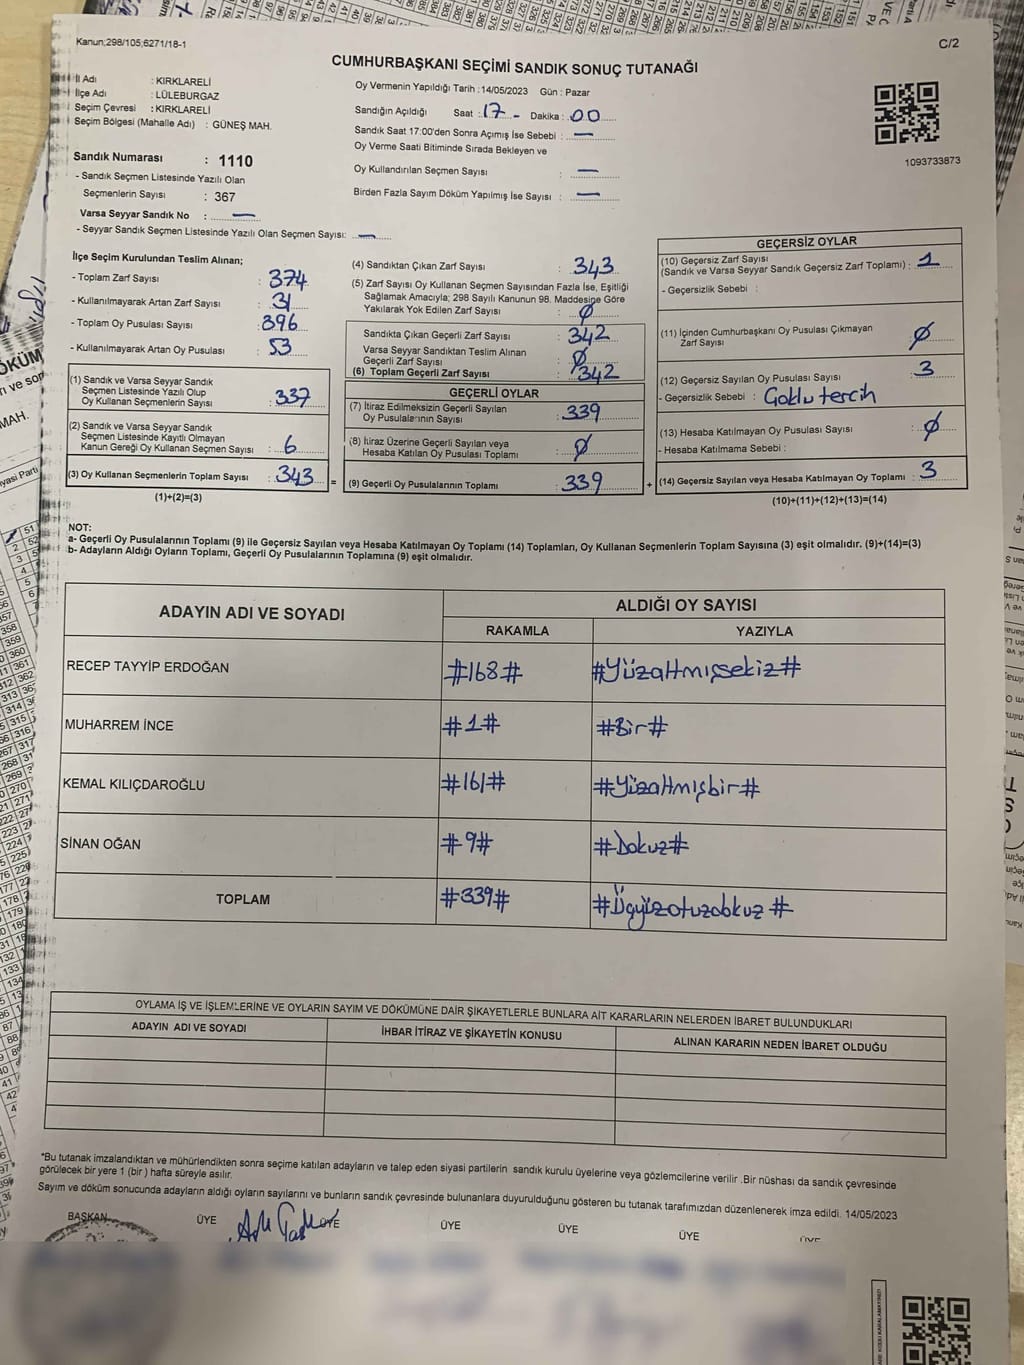 Kanun;298/105;6271/18-1
C/2
CUMHURBAŞKANI SEÇİMİ SANDIK SONUÇ TUTANAĞI
İl Adı : KIRKLARELİ
İlçe Adı : LÜLEBURGAZ
Seçim Çevresi : KIRKLARELİ
Seçim Bölgesi (Mahalle Adı) : GÜNEŞ MAH.
Sandık Numarası : 1110
- Sandık Seçmen Listesinde Yazılı Olan
Seçmenlerin Sayısı : 367
Varsa Seyyar Sandık No : —
- Seyyar Sandık Seçmen Listesinde Yazılı Olan Seçmen Sayısı: —
Oy Vermenin Yapıldığı Tarih :14/05/2023 Gün : Pazar
Sandığın Açıldığı Saat : 17 - Dakika : 00
Sandık Saat 17:00'den Sonra Açımış İse Sebebi : —
Oy Verme Saati Bitiminde Sırada Bekleyen ve
Oy Kullandırılan Seçmen Sayısı : —
Birden Fazla Sayım Döküm Yapılmış İse Sayısı : —
1093733873
İlçe Seçim Kurulundan Teslim Alınan;
- Toplam Zarf Sayısı : 374
- Kullanılmayarak Artan Zarf Sayısı : 31
- Toplam Oy Pusulası Sayısı : 396
- Kullanılmayarak Artan Oy Pusulası : 53
(1) Sandık ve Varsa Seyyar Sandık
Seçmen Listesinde Yazılı Olup
Oy Kullanan Seçmenlerin Sayısı : 337
(2) Sandık ve Varsa Seyyar Sandık
Seçmen Listesinde Kayıtlı Olmayan
Kanun Gereği Oy Kullanan Seçmen Sayısı : 6
(3) Oy Kullanan Seçmenlerin Toplam Sayısı : 343 =
(1)+(2)=(3)
(4) Sandıktan Çıkan Zarf Sayısı : 343
(5) Zarf Sayısı Oy Kullanan Seçmen Sayısından Fazla İse, Eşitliği
Sağlamak Amacıyla; 298 Sayılı Kanunun 98. Maddesine Göre
Yakılarak Yok Edilen Zarf Sayısı : Ø
Sandıkta Çıkan Geçerli Zarf Sayısı : 342
Varsa Seyyar Sandıktan Teslim Alınan
Geçerli Zarf Sayısı : Ø
(6) Toplam Geçerli Zarf Sayısı : 342
GEÇERLİ OYLAR
(7) İtiraz Edilmeksizin Geçerli Sayılan
Oy Pusulalarının Sayısı : 339
(8) İtiraz Üzerine Geçerli Sayılan veya
Hesaba Katılan Oy Pusulası Toplamı : Ø
(9) Geçerli Oy Pusulalarının Toplamı : 339 +
GEÇERSİZ OYLAR
(10) Geçersiz Zarf Sayısı
(Sandık ve Varsa Seyyar Sandık Geçersiz Zarf Toplamı) : 1
- Geçersizlik Sebebi :
(11) İçinden Cumhurbaşkanı Oy Pusulası Çıkmayan
Zarf Sayısı : Ø
(12) Geçersiz Sayılan Oy Pusulası Sayısı : 3
- Geçersizlik Sebebi : Çoklu tercih
(13) Hesaba Katılmayan Oy Pusulası Sayısı : Ø
- Hesaba Katılmama Sebebi :
(14) Geçersiz Sayılan veya Hesaba Katılmayan Oy Toplamı : 3
(10)+(11)+(12)+(13)=(14)
NOT:
a- Geçerli Oy Pusulalarının Toplamı (9) ile Geçersiz Sayılan veya Hesaba Katılmayan Oy Toplamı (14) Toplamları, Oy Kullanan Seçmenlerin Toplam Sayısına (3) eşit olmalıdır. (9)+(14)=(3)
b- Adayların Aldığı Oyların Toplamı, Geçerli Oy Pusulalarının Toplamına (9) eşit olmalıdır.
ADAYIN ADI VE SOYADI
ALDIĞI OY SAYISI
RAKAMLA YAZIYLA
RECEP TAYYİP ERDOĞAN #168# #Yüzaltmışsekiz#
MUHARREM İNCE #1# #Bir#
KEMAL KILIÇDAROĞLU #161# #Yüzaltmışbir#
SİNAN OĞAN #9# #Dokuz#
TOPLAM #339# #Üçyüzotuzdokuz#
OYLAMA İŞ VE İŞLEMLERİNE VE OYLARIN SAYIM VE DÖKÜMÜNE DAİR ŞİKAYETLERLE BUNLARA AİT KARARLARIN NELERDEN İBARET BULUNDUKLARI
ADAYIN ADI VE SOYADI İHBAR İTİRAZ VE ŞİKAYETİN KONUSU ALINAN KARARIN NEDEN İBARET OLDUĞU
*Bu tutanak imzalandıktan ve mühürlendikten sonra seçime katılan adayların ve talep eden siyasi partilerin sandık kurulu üyelerine veya gözlemcilerine verilir .Bir nüshası da sandık çevresinde
görülecek bir yere 1 (bir ) hafta süreyle asılır.
Sayım ve döküm sonucunda adayların aldığı oyların sayılarını ve bunların sandık çevresinde bulunanlara duyurulduğunu gösteren bu tutanak tarafımızdan düzenlenerek imza edildi. 14/05/2023
BAŞKAN ÜYE ÜYE ÜYE ÜYE ÜYE ÜYE